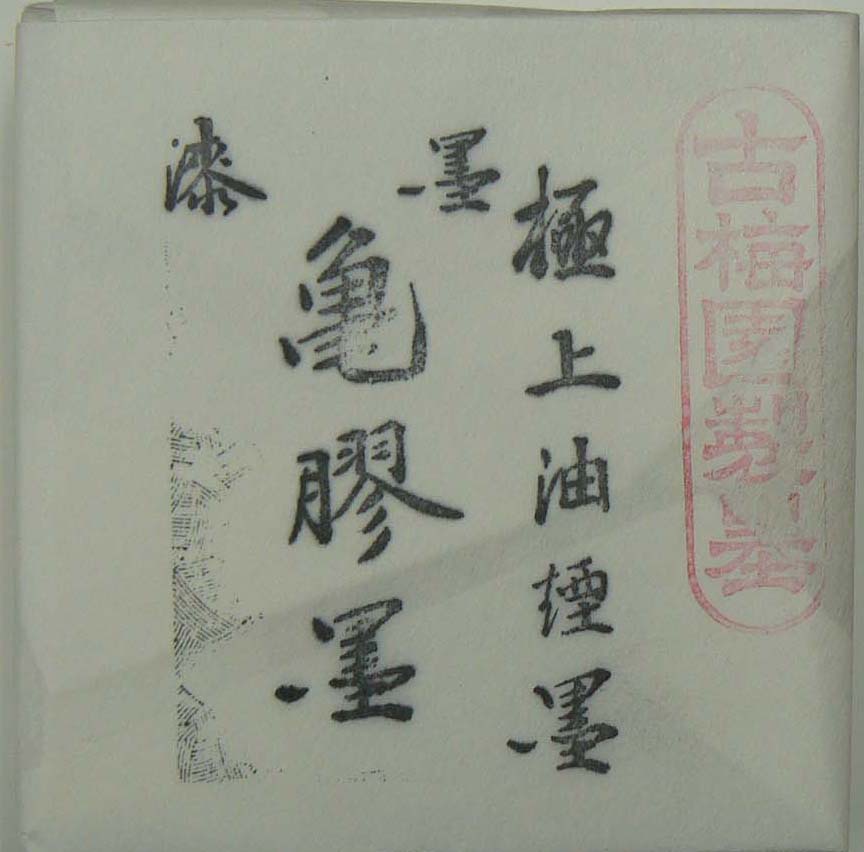 古梅園製墨
極上油煙墨
漆墨
亀膠墨